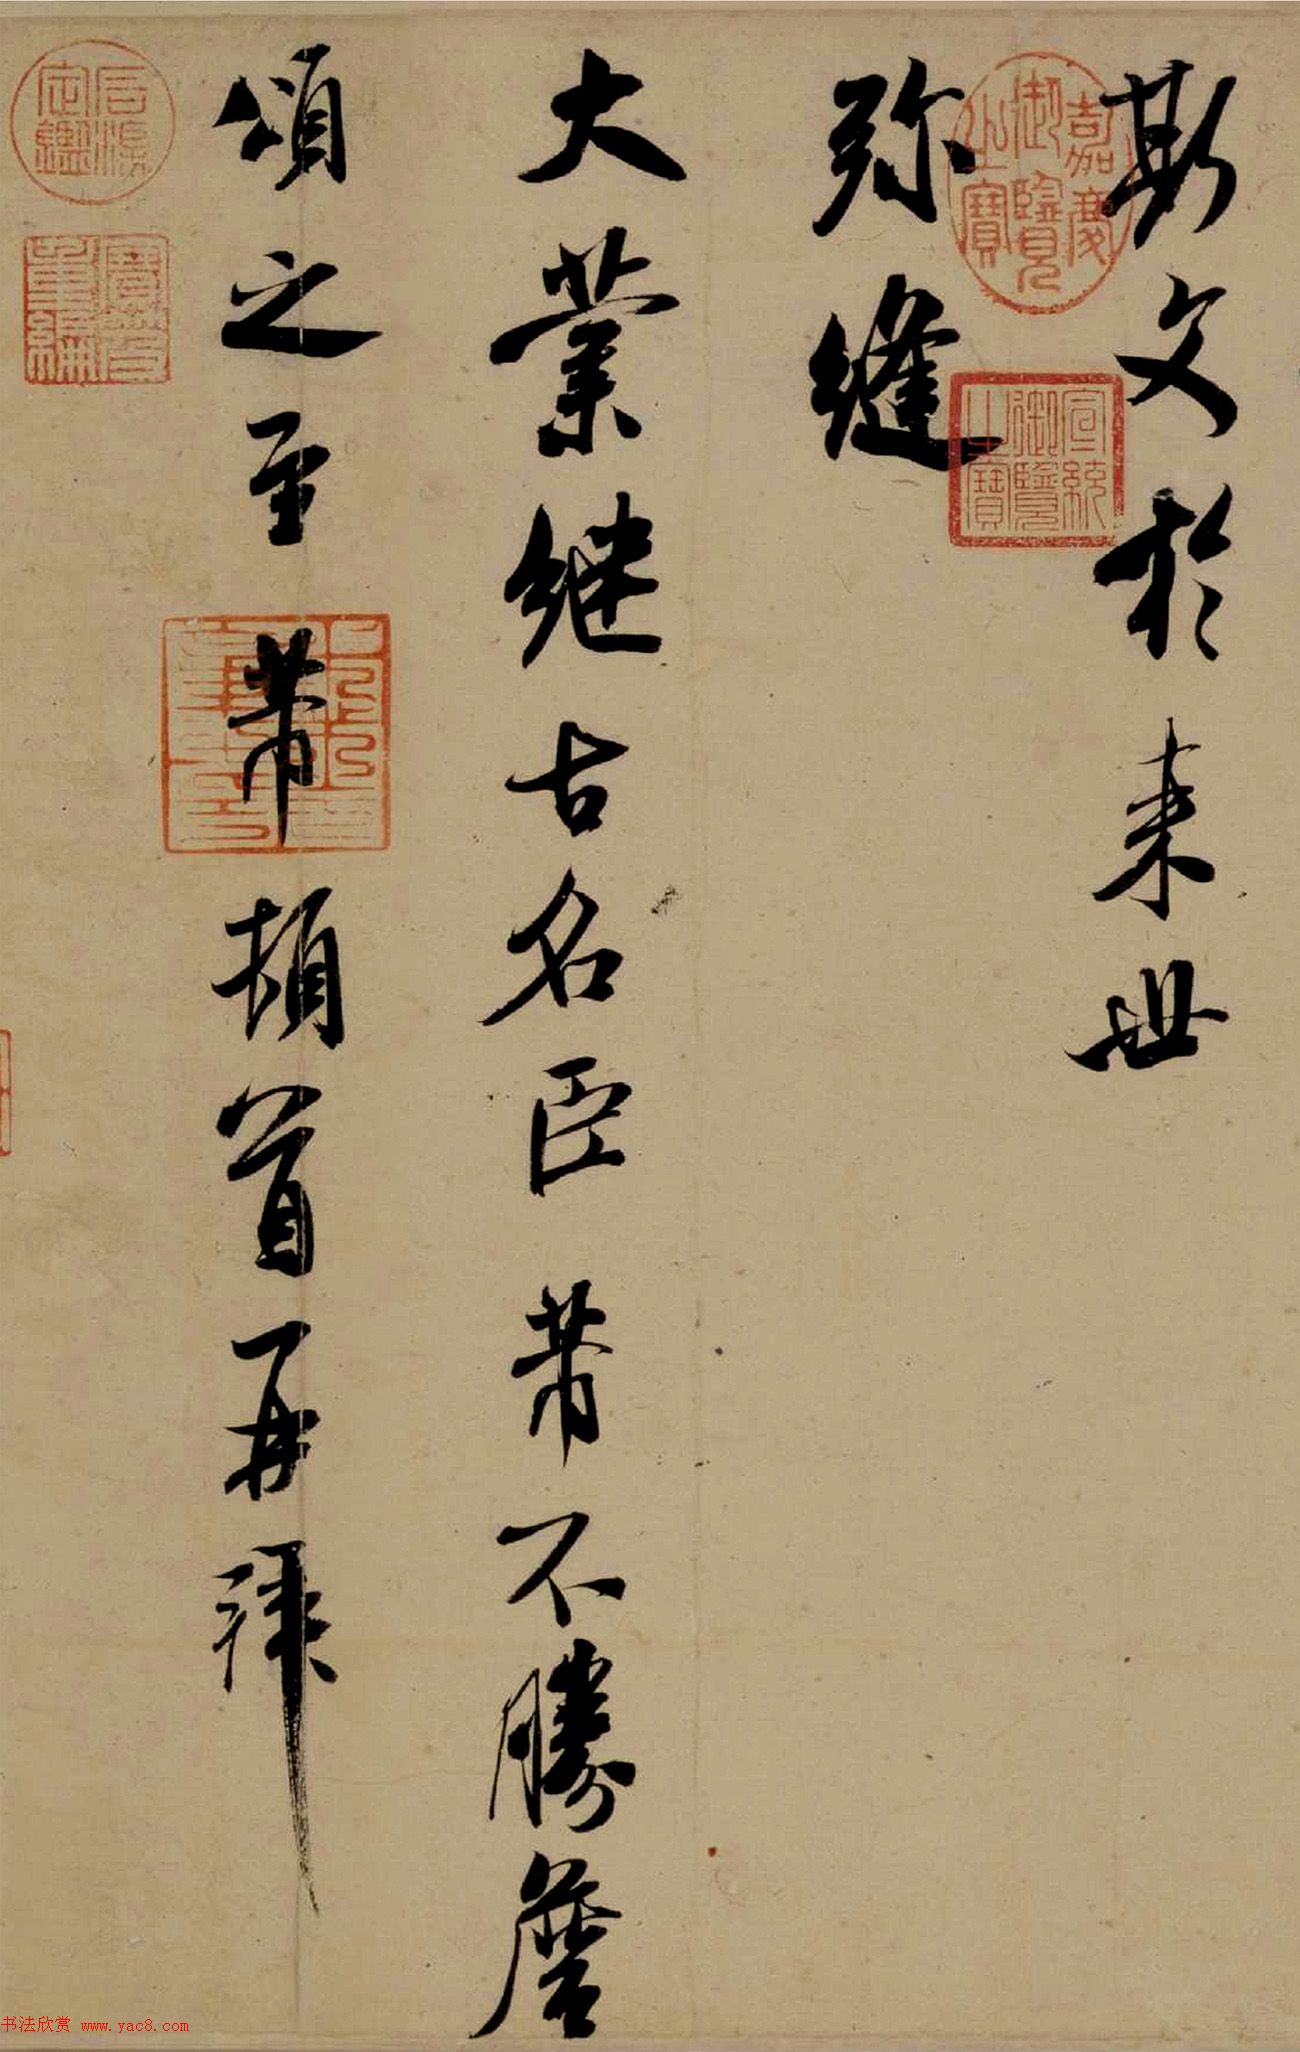 斯文於来世
弥縫
大業継古名臣芾不勝詹
頌之至芾頓首再拜
嘉慶御覽之寶
宣統御覽之寶
石渠定鑑
寶笈重編
书法欣赏 www.yac8.com